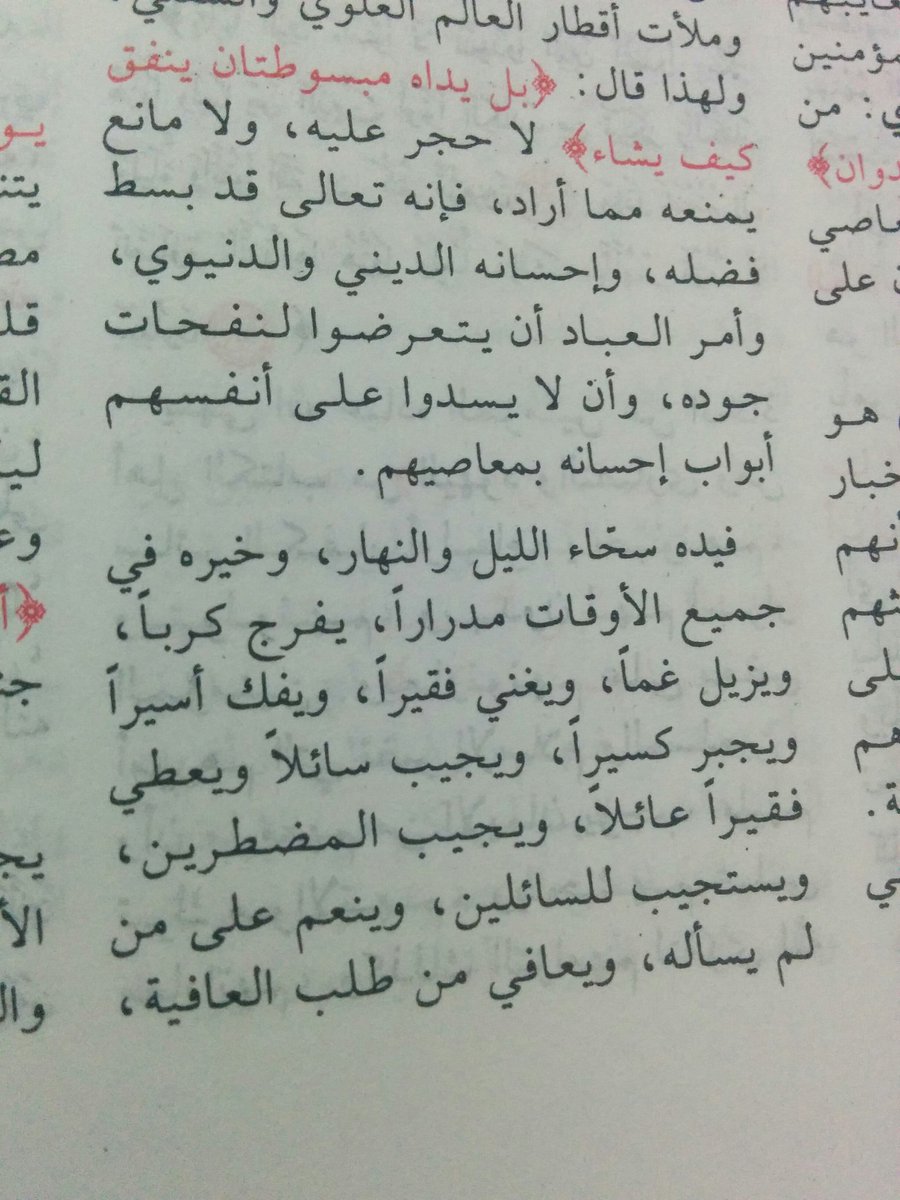 وملأت أقطار العالم العلوي
ولهذا قال: ﴿بل يداه مبسوطتان ينفق
كيف يشاء﴾ لا حجر عليه، ولا مانع
يمنعه مما أراد، فإنه تعالى قد بسط
فضله، وإحسانه الديني والدنيوي،
وأمر العباد أن يتعرضوا لنفحات
جوده، وأن لا يسدوا على أنفسهم
أبواب إحسانه بمعاصيهم.
فيده سحّاء الليل والنهار، وخيره في
جميع الأوقات مدراراً، يفرج كرباً،
ويزيل غماً، ويغني فقيراً، ويفك أسيراً
ويجبر كسيراً، ويجيب سائلاً ويعطي
فقيراً عائلاً، ويجيب المضطرين،
ويستجيب للسائلين، وينعم على من
لم يسأله، ويعافي من طلب العافية،